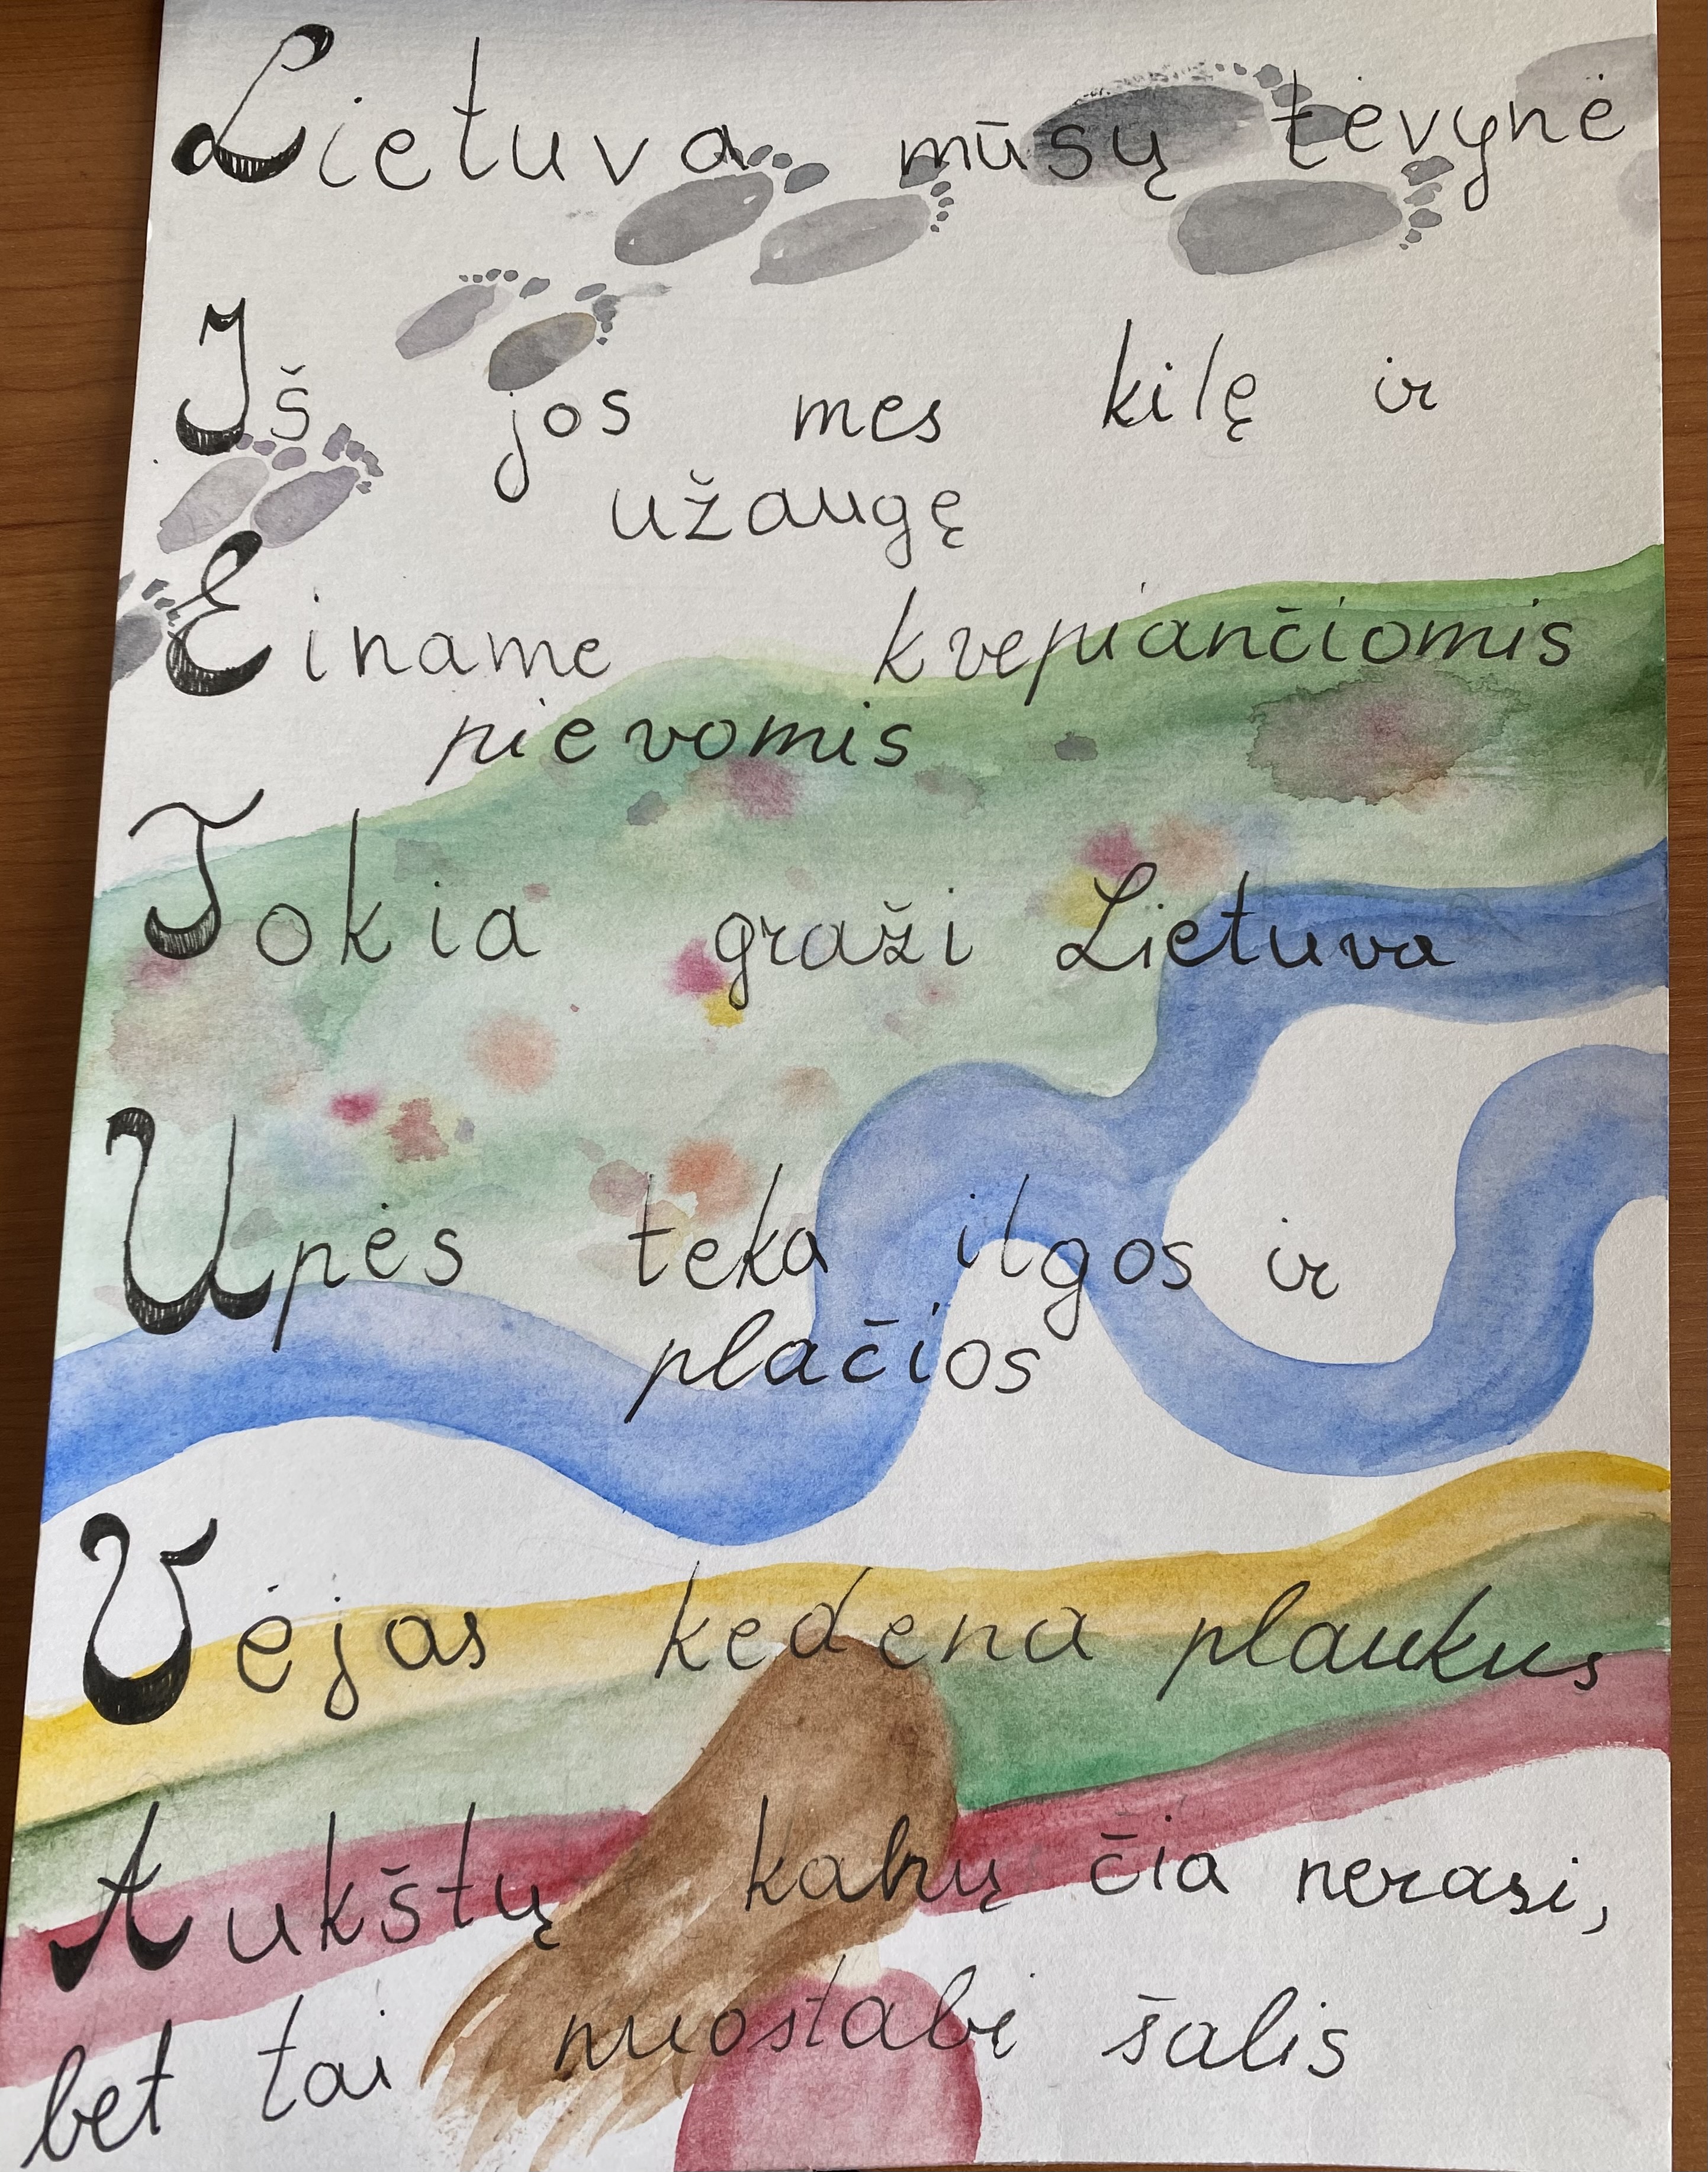 Lietuva mūsų tėvynė
Iš jos mes kilę ir
užaugę
Einame kvepiančiomis
pievomis
Tokia graži Lietuva
Upės teka ilgos ir
plačios
Vėjas kedena plaukus
Aukštų kalnų čia nerasi,
bet tai nuostabi šalis